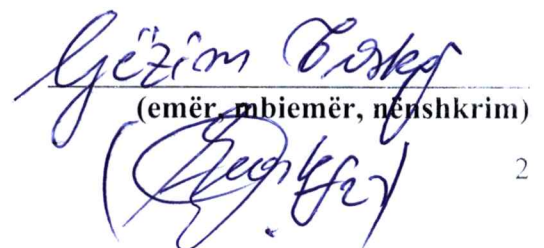 Gëzim Toska
(emër, mbiemër, nënshkrim)
2